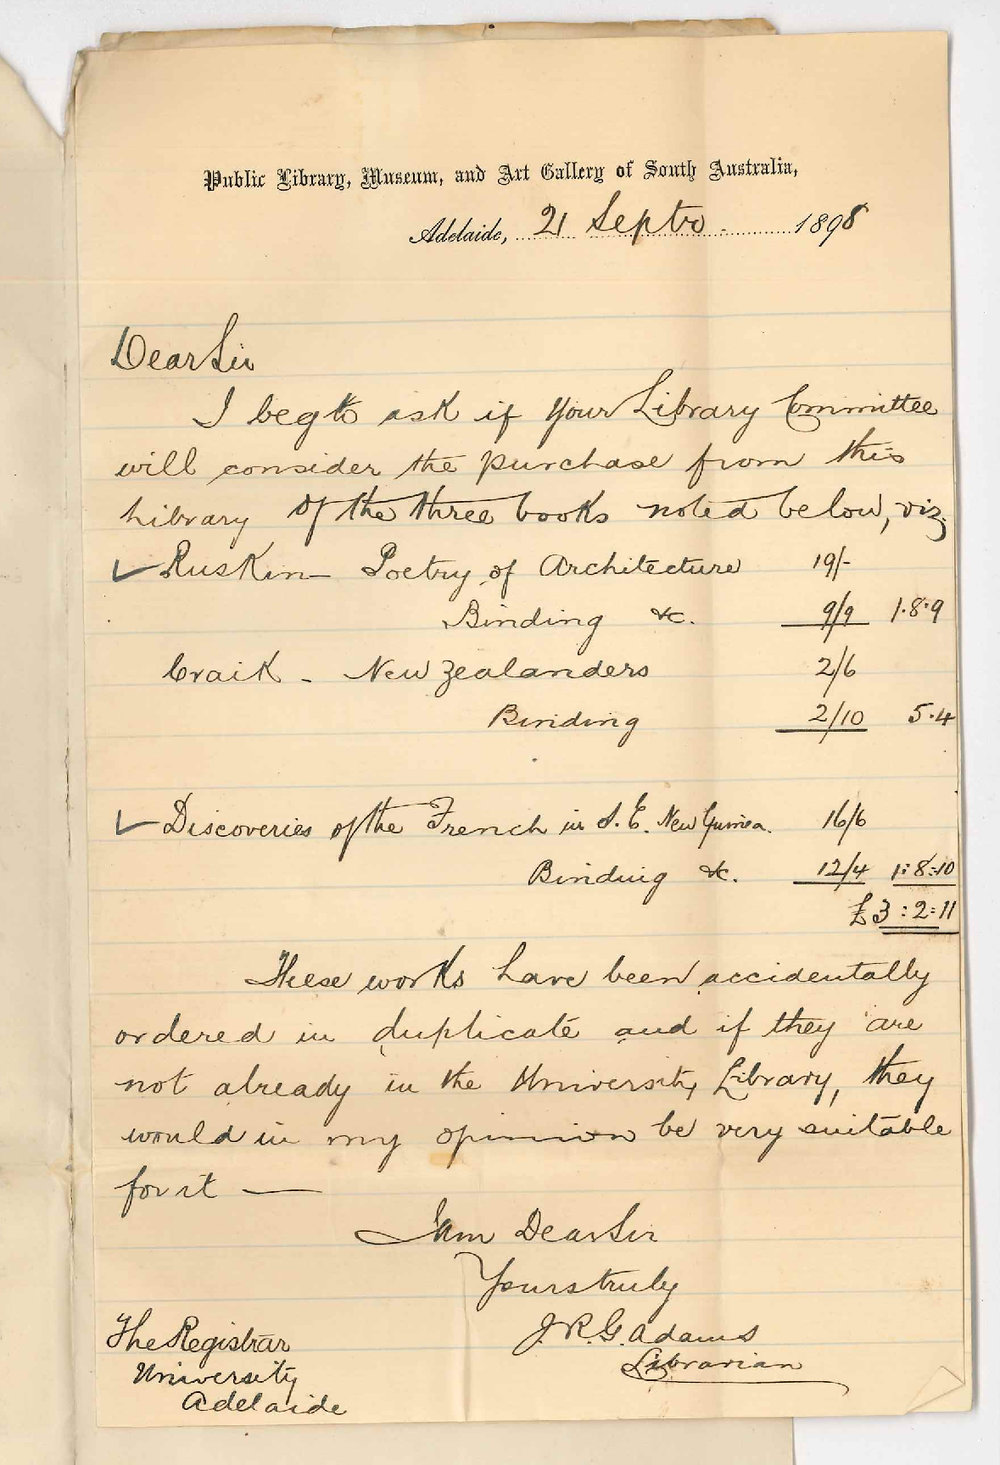 Public Library, Museum, and Art Gallery of South Australia,
Adelaide, 21 Septr. 1898
Dear Sir
I beg to ask if your Library Committee
will consider the purchase from this
Library of the three books noted below, viz.
✓ Ruskin — Poetry of Architecture 19/-
Binding &c. 9/9 1.8.9
Craik - New Zealanders 2/6
Binding 2/10 5.4
✓ Discoveries of the French in S. E. New Guinea. 16/6
Binding &c. 12/4 1:8:10
£3:2:11
These works have been accidentally
ordered in duplicate and if they are
not already in the University Library, they
would in my opinion be very suitable
for it —
I am Dear Sir
Yours truly
J. R. G. Adams
Librarian
The Registrar
University
Adelaide